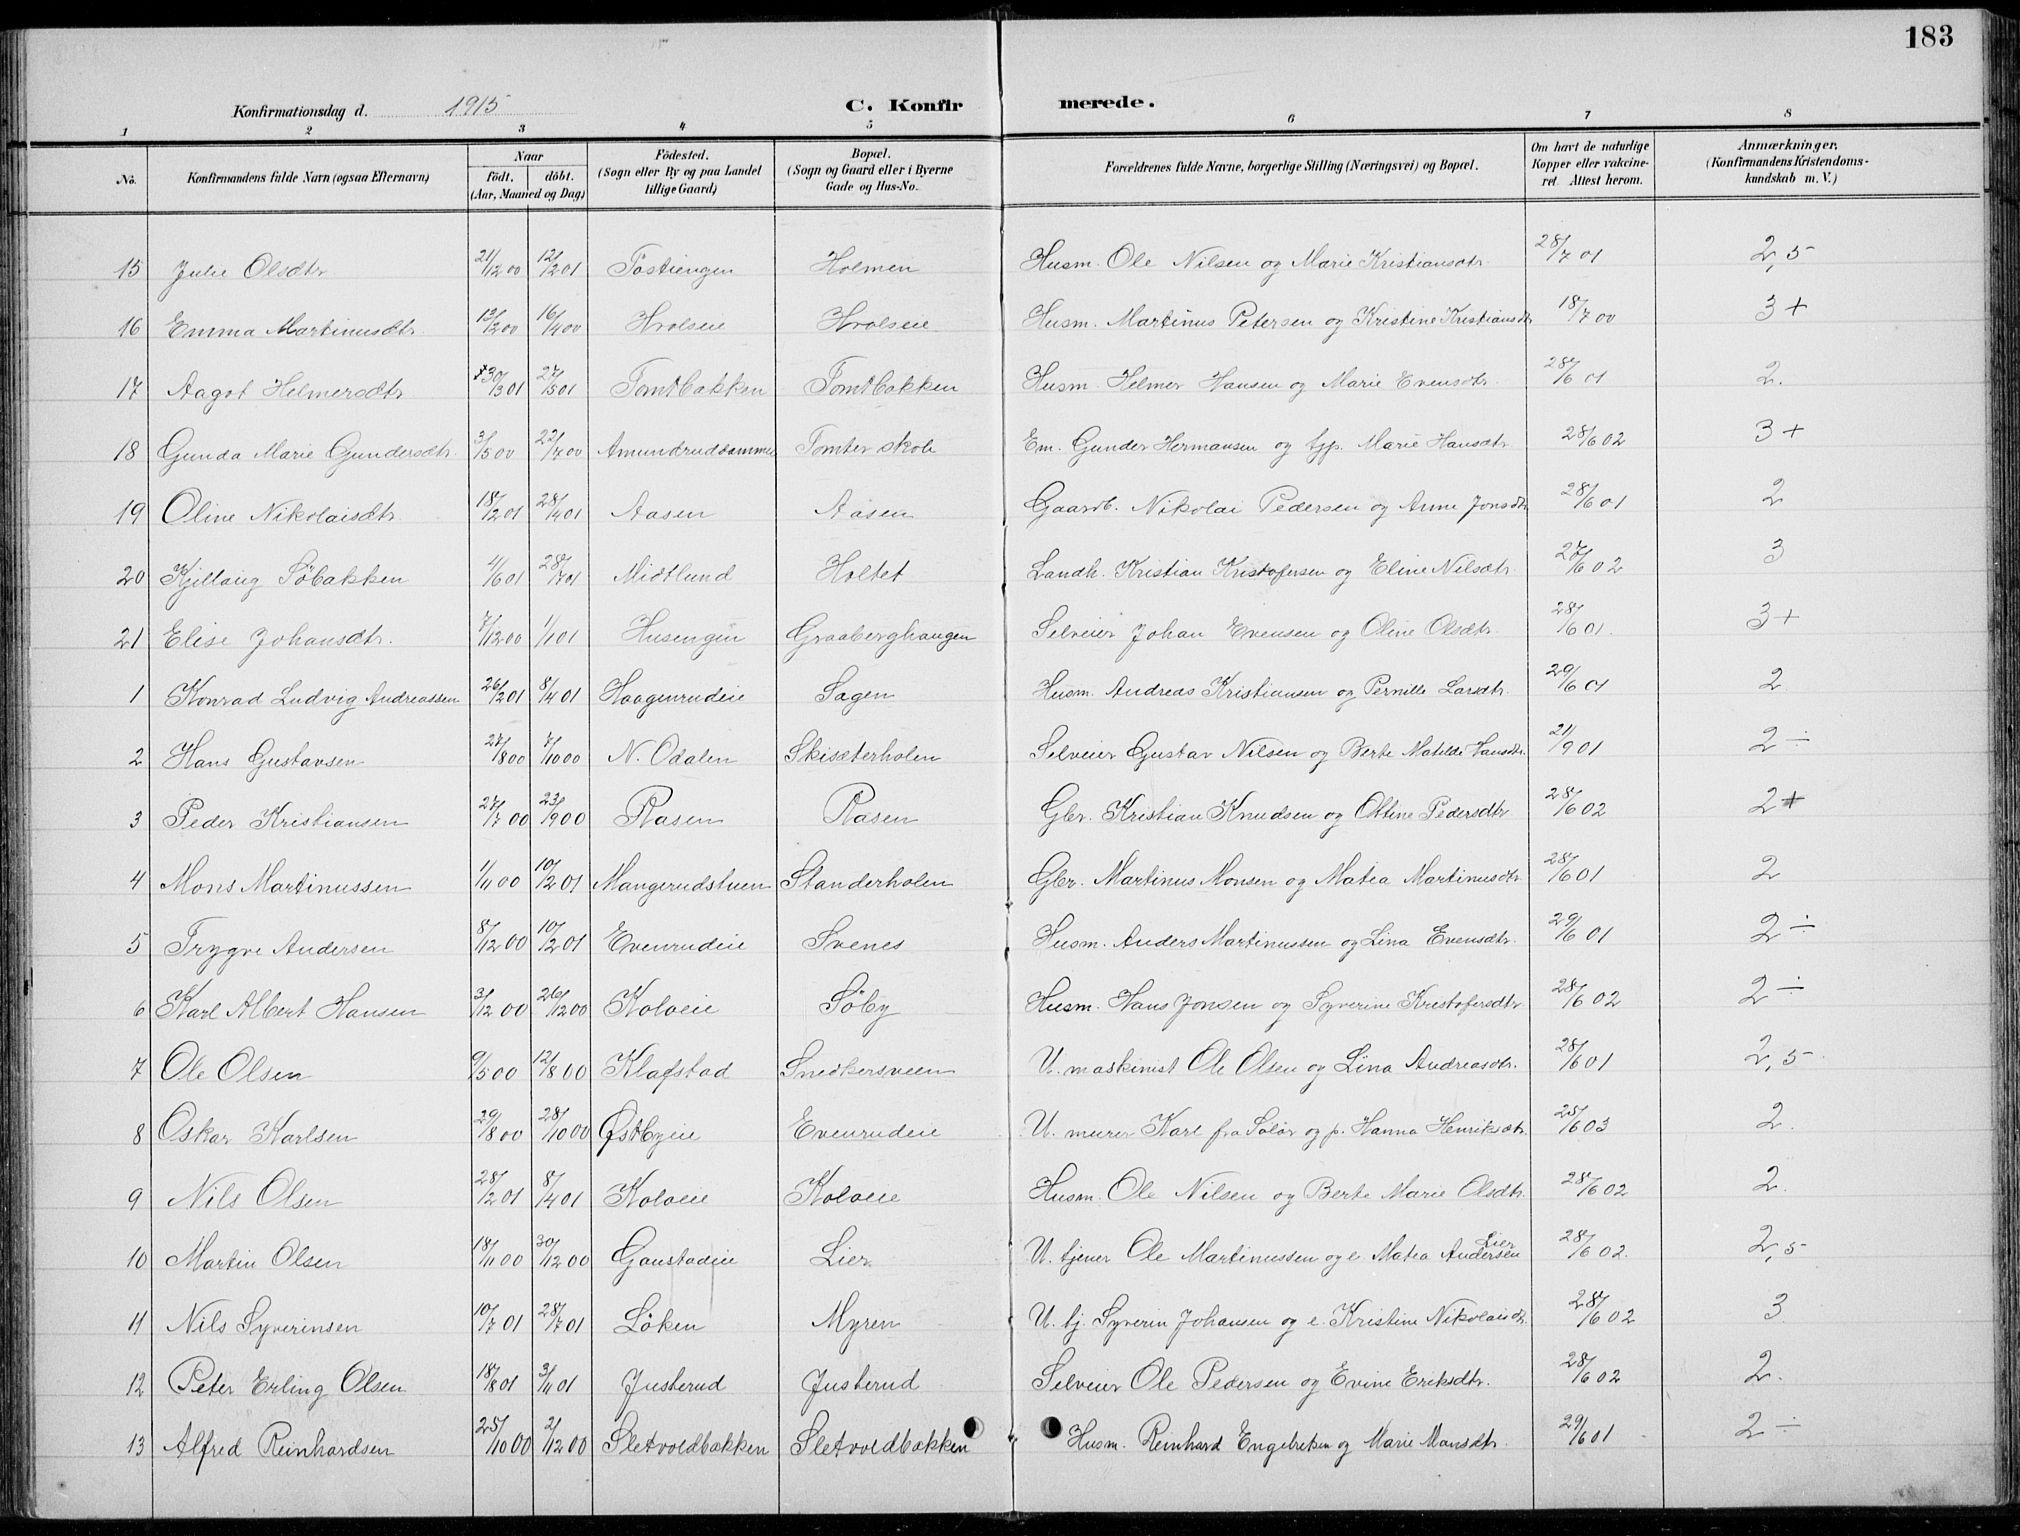 183
Konfirmationsdag d. 1915 C. Konfirmerede.
1 2 3 4 5 6 7 8
No. Konfirmandens fulde Navn (ogsaa Efternavn) Naar födt. döbt. (Aar, Maaned og Dag) Födested. (Sogn eller By og paa Landet tillige Gaard) Bopæl. (Sogn og Gaard eller i Byerne Gade og Hus-No. Forældrenes fulde Navne, borgerlige Stilling (Næringsvei) og Bopæl. Om havt de naturlige Kopper eller vakcineret. Attest herom. Anmærkninger. (Konfirmandens Kristendomskundskab m. V.)
15 Julie Olsdtr 21/12 00 12/2 01 Tostiengen Holmen Husm. Ole Nilsen og Marie Kristiansdtr. 28/7 01 2,5
16 Emma Martinusdtr. 13/2 00 16/4 00 Hvolseie Hvolseie Husm. Martinus Petersen og Kristine Kristiansdtr 18/7 00 3+
17 Aagot Helmersdtr 30/3 01 27/5 01 Tomtbakken Tomtbakken Husm. Helmer Hansen og Marie Evensdtr. 28/6 01 2.
18 Gunda Marie Gundersdtr. 3/5 00 22/7 00 Amundruddammen Tomter skole Em. Gunder Hermansen og tjp. Marie Hansdtr 28/6 02 3+
19 Oline Nikolaisdtr. 18/2 01 28/4 01 Aasen Aasen Gaardb. Nikolai Pedersen og Anne Jonsdtr 28/6 01 2
20 Kjellaug Söbakken 4/6 01 28/7 01 Midtlund Holtet Landh. Kristian Kristofersen og Eline Nilsdtr. 27/6 02 3
21 Elise Johansdtr. 7/12 00 1/1 01 Husengen Graaberghaugen Selveier Johan Evensen og Oline Olsdtr. 28/6 01. 3+
1 Konrad Ludvig Andreassen 26/2 01 8/4 01 Haagenrudeie Sagen Husm. Andreas Kristiansen og Pernille Larsdtr. 29/6 01 2
2 Hans Gustavsen 27/8 00 7/10 00 N. Odalen Skisæterholen Selveier Gustav Nilsen og Berte Matilde Hansdtr. 21/9 01 2÷
3 Peder Kristiansen 27/7 00 23/9 00 Rasen Rasen Gbr. Kristian Knudsen og Ottine Pedersdtr 28/6 02 2+
4 Mons Martinussen 1/11 00 10/2 01 Mangerudstuen Standerholen Gbr. Martinus Monsen og Matea Martinusdtr 28/6 01 2
5 Trygve Andersen 8/12 00 10/2 01 Evenrudeie Svenes Husm. Anders Martinussen og Lina Evensdtr. 29/6 01 2÷
6 Karl Albert Hansen 3/12 00 26/12 00 Koloeie Söby Husm. Hans Jonsen og Syverine Kristofersdtr 28/6 02 2÷
7 Ole Olsen 9/5 00 12/8 00 Klafstad Snedkersveen U. maskinist Ole Olsen og Lina Andreasdtr. 28/6 01 2,5
8 Oskar Karlsen 29/8 00 28/10 00 Østbyeie Evenrudeie U. murer Karl fra Solör og p. Hanna Henriksdtr. 25/6 03 2.
9 Nils Olsen 28/2 01 8/4 01 Koloeie Koloeie Husm. Ole Nilsen og Berte Marie Olsdtr. 28/6 02 2.
10 Martin Olsen 18/11 00 30/12 00 Gaustadeie Lier U. tjener Ole Martinussen og e. Matea Andersen Lier 28/6 02. 2,5
11 Nils Syverinsen 10/7 01 28/7 01 Löken Myren U. tj. Syverin Johansen og e. Kristine Nikolaisdtr. 28/6 02 3
12 Peter Erling Olsen 18/8 01 3/11 01 Justerud Justerud Selveier Ole Pedersen og Evine Eriksdtr. 28/6 02 2.
13 Alfred Reinhardsen 25/10 00 2/12 00 Sletvoldbakken Sletvoldbakken Husm. Reinhard Engebretsen og Marie Mansdtr. 29/6 01 2÷